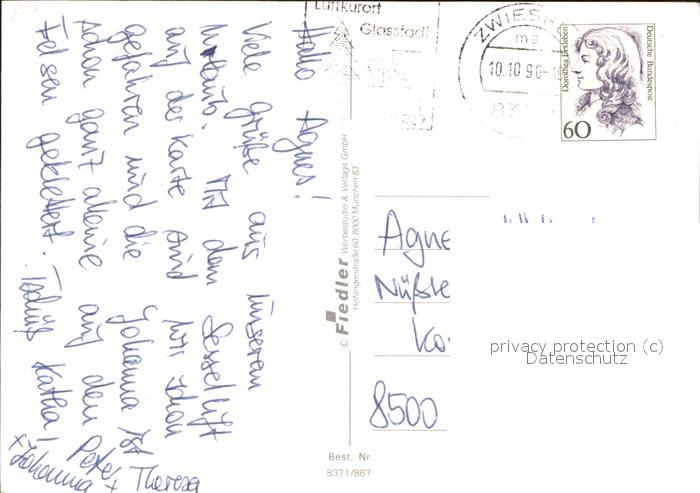 Hallo Agnes!
Viele grüße aus unserem
Urlaub. Mit dem Sessellift
auf der Karte sind wir schon
gefahren und die Johanna ist
schon ganz alleine auf den
Felsen geklettert. Tschüß Katha!
+ Johanna + Theresa
Luftkurort
Glasstadt
ZWIES
10.10.90
83
Deutsche Bundespost
Dorothea Erxleben
60
© Fiedler Werbestudio & Verlags GmbH
Hofangerstraße 60, 8000 München 83
Agne
Nüßle
Ko
8500
privacy protection (c)
Datenschutz
Best. Nr.
8371/867